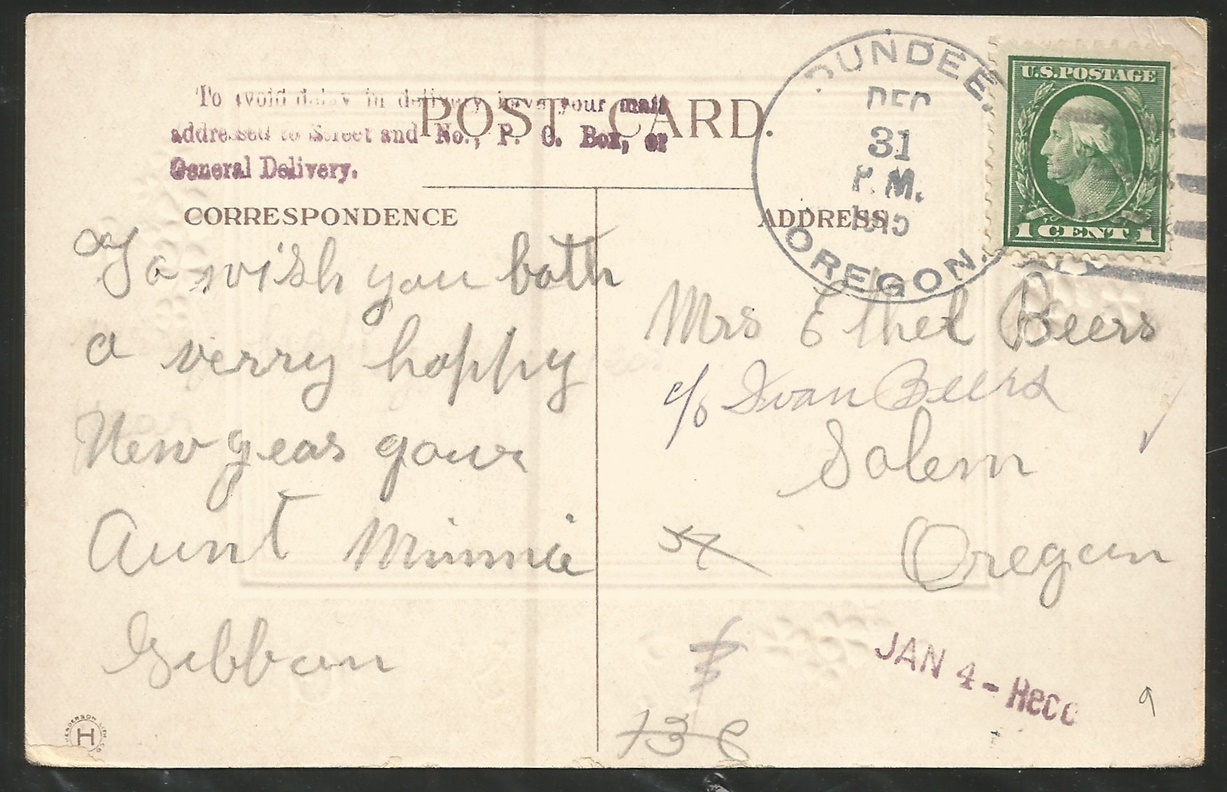 To avoid delay in delivery have your mail
addressed to Street and No., P. O. Box, or
General Delivery.
POST CARD.
DUNDEE,
DEC
31
P. M.
OREGON.
U.S. POSTAGE
1 CENT 1
CORRESPONDENCE
To wish you both
a verry happy
New years your
Aunt Minnie
Gibban
ADDRESS
Mrs Ethel Beers
c/o Ivan Beers
Salem
Oregan
57
13 6
JAN 4 - Recd
9
HENDERSON LITH. CO.
H